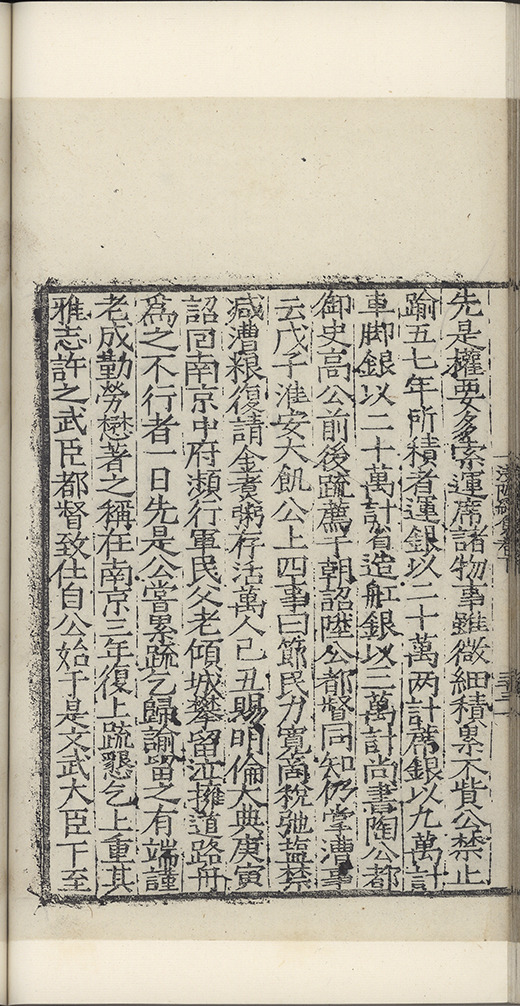 先是權要多索運席諸物事雖微細積累不貲公禁止
踰五七年所積者運銀以二十萬两計席銀以九萬計
車脚銀以二十萬計省造舡銀以三萬計尚書陶公都
御史高公前後疏薦于朝詔陞公都督同知仍掌漕事
云戊子淮安大飢公上四事曰節民力寬商稅弛盐禁
减漕粮復請金煑粥存活萬人己丑賜明倫大典庚寅
詔囘南京中府瀕行軍民父老傾城攀留泣擁道路舟
爲之不行者一日先是公嘗累疏乞歸諭留之有端謹
老成勤勞懋著之稱在南京三年復上疏懇乞上重其
雅志許之武臣都督致仕自公始于是文武大臣下至